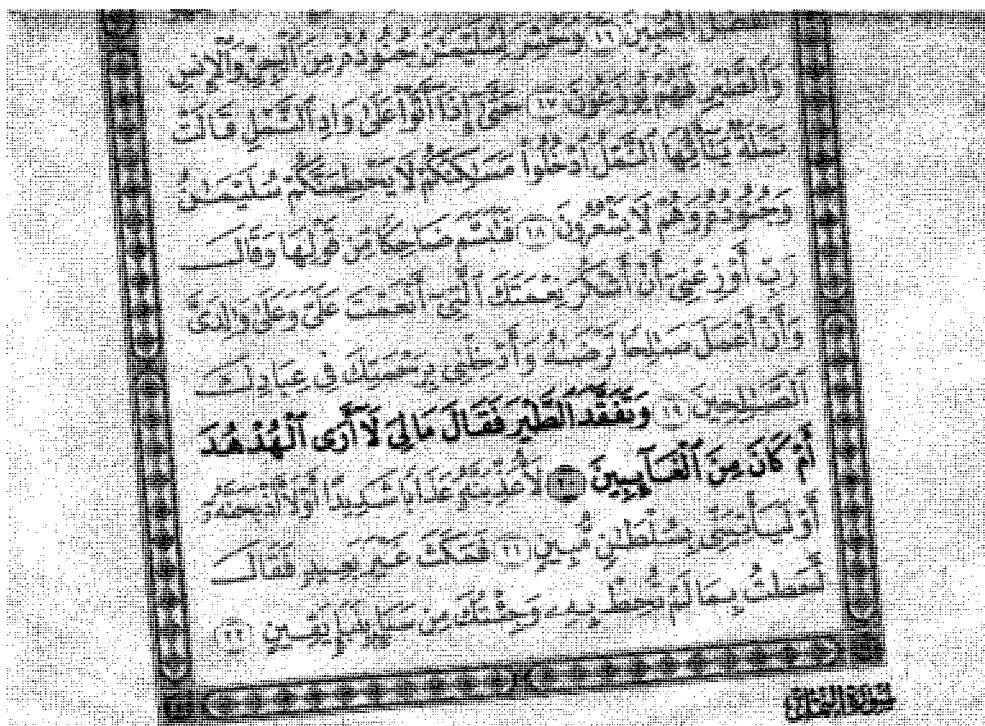 ٱلْفَضْلُ ٱلْمُبِينُ ١٦ وَحُشِرَ لِسُلَيْمَٰنَ جُنُودُهُۥ مِنَ ٱلْجِنِّ وَٱلْإِنسِ
وَٱلطَّيْرِ فَهُمْ يُوزَعُونَ ١٧ حَتَّىٰٓ إِذَآ أَتَوْا۟ عَلَىٰ وَادِ ٱلنَّمْلِ قَالَتْ
نَمْلَةٌ يَٰٓأَيُّهَا ٱلنَّمْلُ ٱدْخُلُوا۟ مَسَٰكِنَكُمْ لَا يَحْطِمَنَّكُمْ سُلَيْمَٰنُ
وَجُنُودُهُۥ وَهُمْ لَا يَشْعُرُونَ ١٨ فَتَبَسَّمَ ضَاحِكًا مِّن قَوْلِهَا وَقَالَ
رَبِّ أَوْزِعْنِىٓ أَنْ أَشْكُرَ نِعْمَتَكَ ٱلَّتِىٓ أَنْعَمْتَ عَلَىَّ وَعَلَىٰ وَٰلِدَىَّ
وَأَنْ أَعْمَلَ صَٰلِحًا تَرْضَىٰهُ وَأَدْخِلْنِى بِرَحْمَتِكَ فِى عِبَادِكَ
ٱلصَّٰلِحِينَ ١٩ وَتَفَقَّدَ ٱلطَّيْرَ فَقَالَ مَا لِىَ لَآ أَرَى ٱلْهُدْهُدَ
أَمْ كَانَ مِنَ ٱلْغَآئِبِينَ ٢٠ لَأُعَذِّبَنَّهُۥ عَذَابًا شَدِيدًا أَوْ لَأَا۟ذْبَحَنَّهُۥٓ
أَوْ لَيَأْتِيَنِّى بِسُلْطَٰنٍ مُّبِينٍ ٢١ فَمَكَثَ غَيْرَ بَعِيدٍ فَقَالَ
أَحَطتُ بِمَا لَمْ تُحِطْ بِهِۦ وَجِئْتُكَ مِن سَبَإٍۭ بِنَبَإٍ يَقِينٍ ٢٢